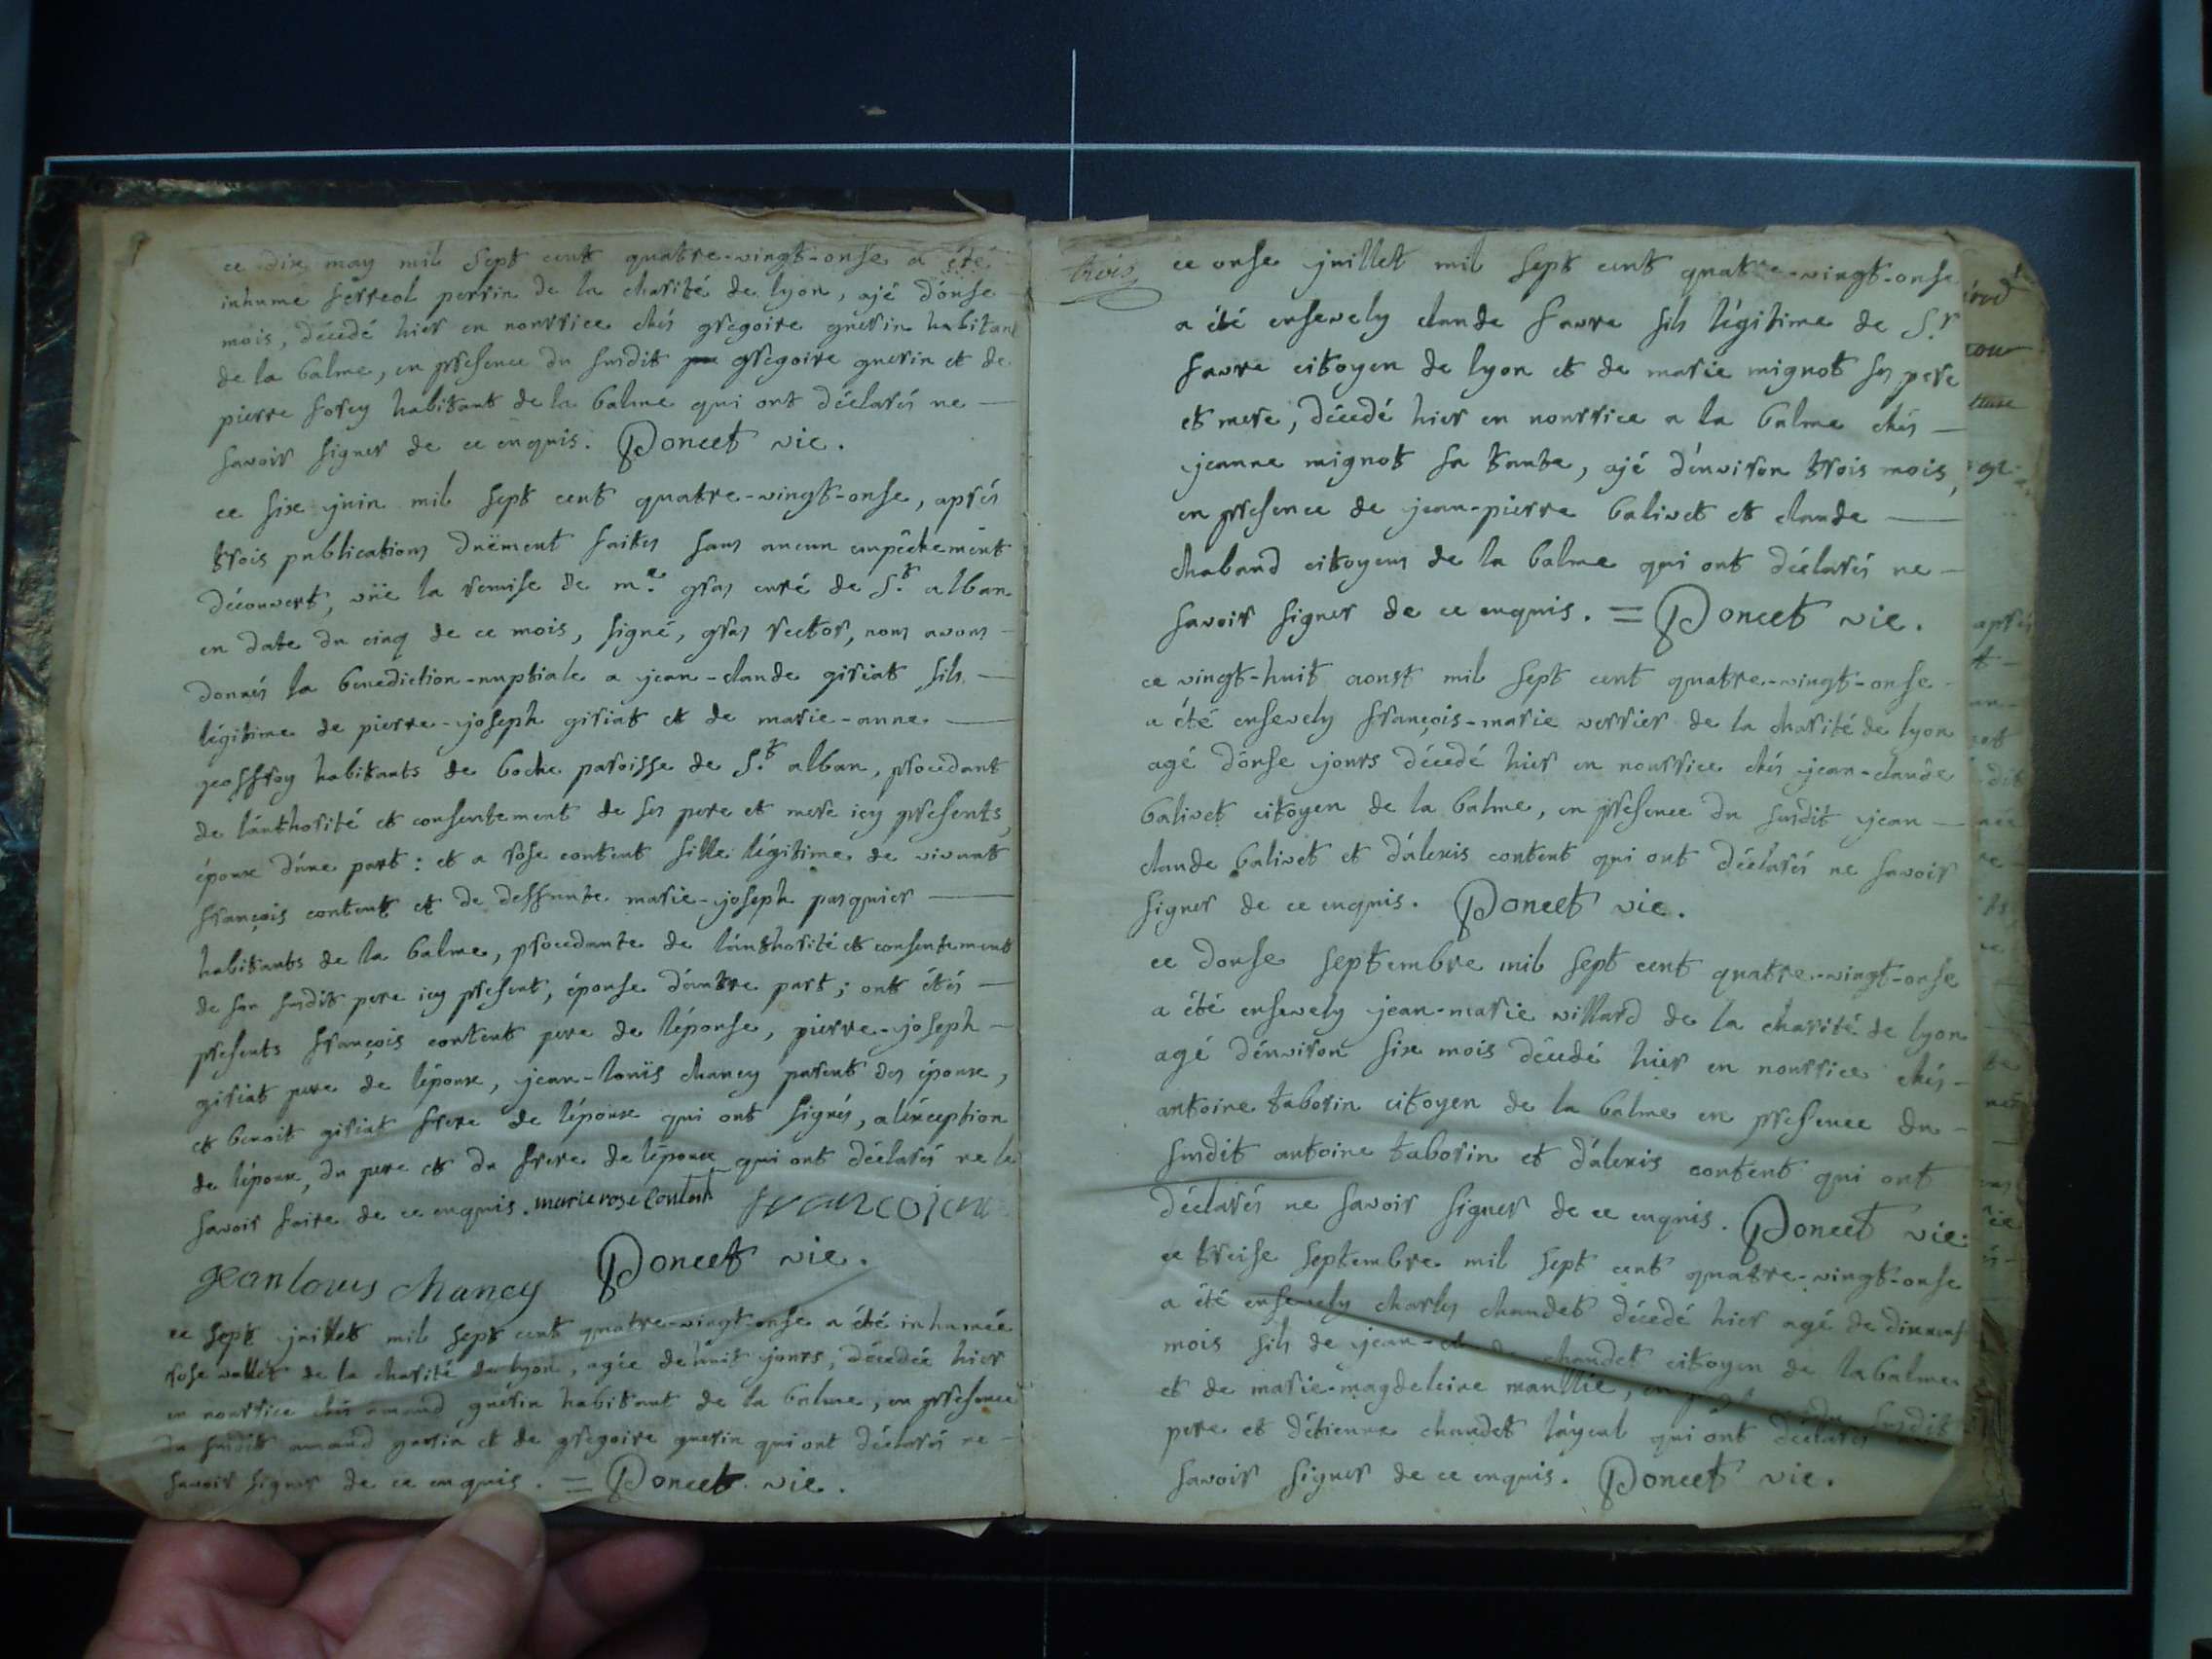 ce dix may mil sept cent quatre-vingt-onse a été
inhume ferreol perrin de la charité de lyon, ajé d'onse
mois, décédé hier en nourrice chés gregoire guerin habitant
de la balme, en presence du susdit gregoire guerin et de
pierre forey habitant de la balme qui ont déclarés ne
savoir signer de ce enquis. Poncet vic.
ce six juin mil sept cent quatre-vingt-onse, aprés
trois publications duëment faites sans aucun empêchement
découvert, vûe la remise de me. gras curé de St. alban
en date du cinq de ce mois, signé, gras rector, nous avons
donnés la benediction-nuptiale a jean-claude giriat fils
légitime de pierre-joseph giriat et de marie-anne
geoffroy habitants de boche paroisse de St. alban, procedant
de l'authorité et consentement de ses pere et mere icy presents,
époux d'une part: et a rose content fille légitime de vivant
françois content et de deffunte marie-joseph pasquier
habitants de la balme, procedante de l'authorité et consentement
de son susdit pere icy present, épouse d'autre part; ont étés
presents françois content pere de l'épouse, pierre-joseph
giriat pere de l'époux, jean-louïs chaney parent des époux,
et benoit giriat frere de l'époux qui ont signés, a l'exception
de l'époux, du pere et du frere de l'époux qui ont déclarés ne le
savoir faire de ce enquis. marie rose Content
jean louis chaney Poncet vic.
ce sept juillet mil sept cent quatre-vingt-onse a été inhumée
rose vallet de la charité de lyon, agée de huit jours, décedée hier
en nourrice chés amand guerin habitant de la balme, en presence
du susdit amand guerin et de gregoire guerin qui ont déclarés ne
savoir signer de ce enquis. = Poncet vic.
trois
ce onse juillet mil sept cent quatre-vingt-onse
a été ensevely claude favre fils légitime de Sr.
favre citoyen de lyon et de marie mignot ses pere
et mere, décedé hier en nourrice a la balme chés
jeanne mignot sa tante, ajé d'environ trois mois,
en presence de jean-pierre balivet et claude
chaband citoyens de la balme qui ont déclarés ne
savoir signer de ce enquis. = Poncet vic.
ce vingt-huit aoust mil sept cent quatre-vingt-onse
a été ensevely françois-marie verrier de la charité de lyon
agé d'onse jours décedé hier en nourrice chés jean-claude
balivet citoyen de la balme, en presence du susdit jean
claude balivet et d'alexis content qui ont déclarés ne savoir
signer de ce enquis. Poncet vic.
ce douse septembre mil sept cent quatre-vingt-onse
a été ensevely jean-marie villard de la charité de lyon
agé d'environ six mois décedé hier en nourrice chés
antoine taborin citoyen de la balme en presence du
susdit antoine taborin et d'alexis content qui ont
déclarés ne savoir signer de ce enquis. Poncet vic.
ce treise septembre mil sept cent quatre-vingt-onse
a été ensevely charles chaudet décedé hier agé de dixneuf
mois fils de jean- chaudet citoyen de la balme
et de marie-magdeleine susdit
pere et d'étienne chaudet l'ayeul qui ont déclarés
savoir signer de ce enquis. Poncet vic.